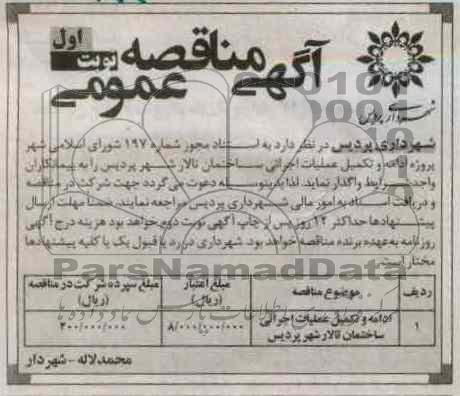 آگهی مناقصه عمومی
نوبت اول
شهرداری پردیس
شهرداری پردیس در نظر دارد به استناد مجوز شماره ۱۹۷ شورای اسلامی شهر
پروژه ادامه و تکمیل عملیات اجرائی ساختمان تالار شهر پردیس را به پیمانکاران
واجد شرایط واگذار نماید. لذا بدینوسیله دعوت می گردد جهت شرکت در مناقصه
و دریافت اسناد به امور مالی شهرداری پردیس مراجعه نمایند. ضمنا مهلت ارسال
پیشنهادها حداکثر ۱۲ روز پس از چاپ آگهی نوبت دوم خواهد بود. هزینه درج آگهی
روزنامه به عهده برنده مناقصه خواهد بود. شهرداری در رد یا قبول یک یا کلیه پیشنهادها
مختار است.
ParsNamadData
ردیف موضوع مناقصه مبلغ اعتبار (ریال) مبلغ سپرده شرکت در مناقصه (ریال)
۱ ادامه و تکمیل عملیات اجرائی ساختمان تالار شهر پردیس ۸/۰۰۰/۰۰۰/۰۰۰ ۲۰۰/۰۰۰/۰۰۰
محمد لاله - شهردار